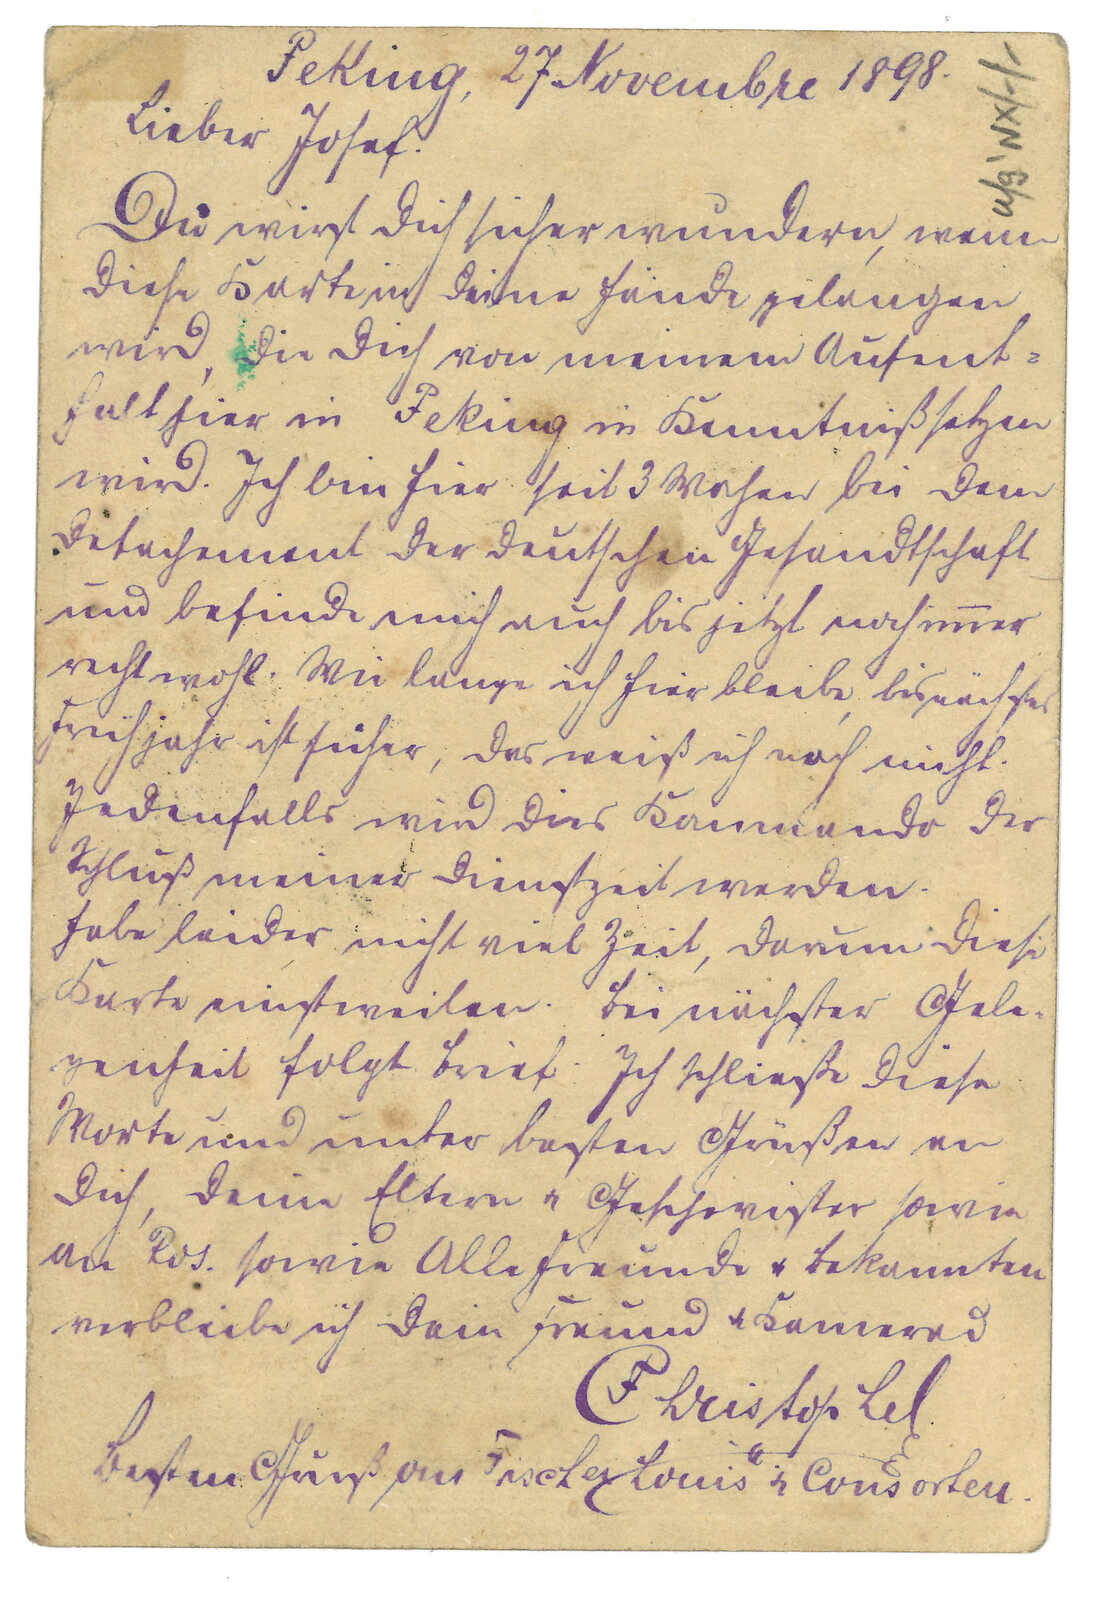 Peking, 27. Novembre 1898.
Lieber Josef.
Du wirst Dich sicher wundern, wenn
diese Karte in Deine Hände gelangen
wird, die Dich von meinem Aufent=
halt hier in Peking in Kenntniß setzen
wird. Ich bin hier seit 3 Wochen bei dem
Detachement der deutschen Gesandtschaft
und befinde mich auch bis jetzt noch im̅er
recht wohl. Wie lange ich hier bleibe, bis nächstes
Frühjahr ist sicher, das weiß ich noch nicht.
Jedenfalls wird dies Kommando der
Schluß meiner Dienstzeit werden.
Habe leider nicht viel Zeit, darum diese
Karte einstweilen. Bei nächster Gele-
genheit folgt Brief. Ich schließe diese
Worte und unter besten Grüßen an
Dich, Deine Eltern & Geschwister sowie
an Ros. sowie Alle Freunde & Bekannten
verbleibe ich Dein Freund & Kamerad
Christophel
Besten Gruß an Fischer Louis & Consorten.